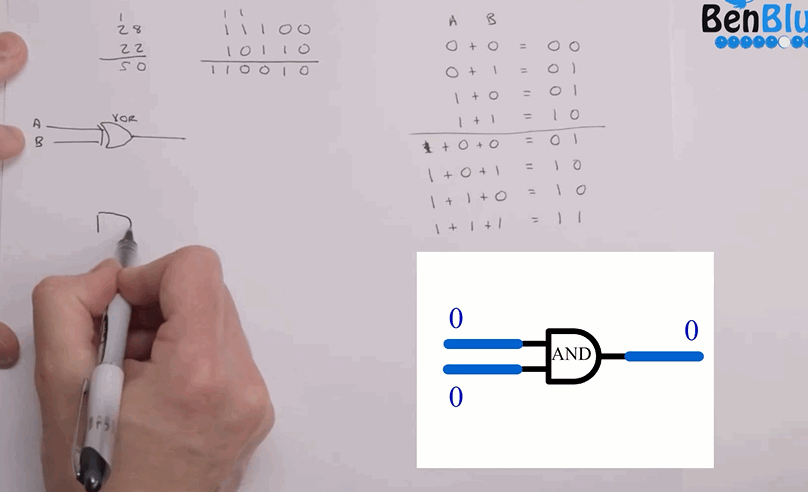 1
28
22
50
1 1
1 1 1 0 0
1 0 1 1 0
1 1 0 0 1 0
XOR
A
B
A B
0 + 0 = 0 0
0 + 1 = 0 1
1 + 0 = 0 1
1 + 1 = 1 0
1 + 0 + 0 = 0 1
1 + 0 + 1 = 1 0
1 + 1 + 0 = 1 0
1 + 1 + 1 = 1 1
BenBlu
0
0
AND
0